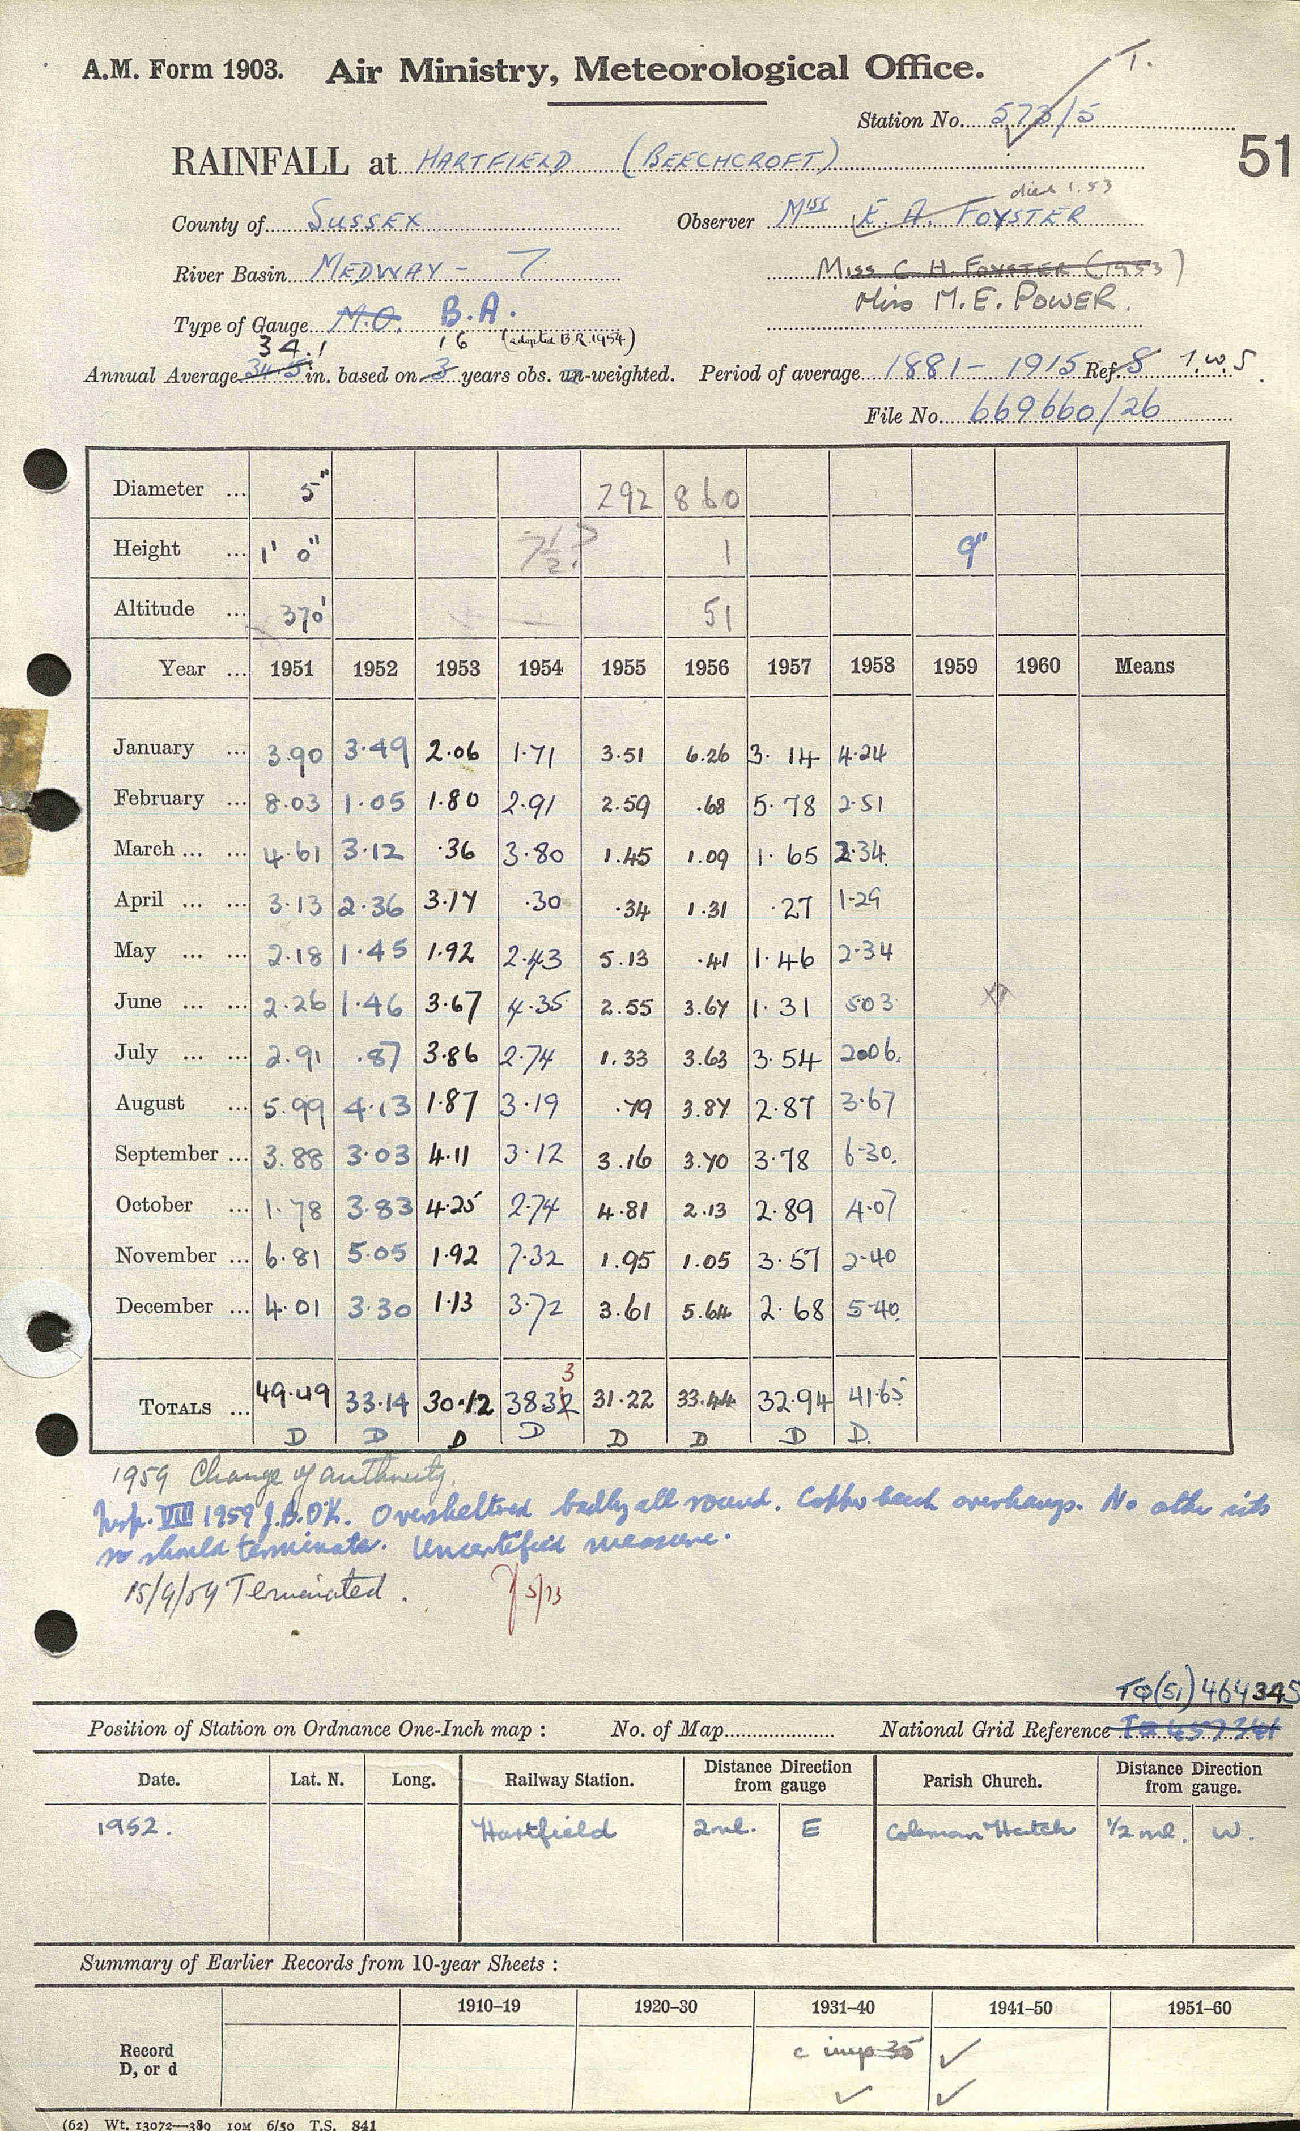 A.M. Form 1903. Air Ministry, Meteorological Office. T.
Station No. 573/5
51
RAINFALL at HARTFIELD (BEECHCROFT)
died 1.53
County of SUSSEX Observer Miss E. A. FOYSTER
River Basin MEDWAY - 7 Miss C. H. FOYSTER (1953)
Type of Gauge M.O. B.A. Miss M.E. POWER.
34.1 16 (adopted B.R. 1954)
Annual Average 34.5 in. based on 3 years obs. un-weighted. Period of average 1881 - 1915 Ref. 8 T.W.S.
File No. 669660/26
Diameter ... 5" 292 860
Height ... 1' 0" 7½? 1 9"
Altitude ... 370' 51
Year ... 1951 1952 1953 1954 1955 1956 1957 1958 1959 1960 Means
January ... 3.90 3.49 2.06 1.71 3.51 6.26 3.14 4.24
February ... 8.03 1.05 1.80 2.91 2.59 .68 5.78 2.51
March ... ... 4.61 3.12 .36 3.80 1.45 1.09 1.65 2.34
April ... ... 3.13 2.36 3.17 .30 .34 1.31 .27 1.29
May ... ... 2.18 1.45 1.92 2.43 5.13 .41 1.46 2.34
June ... ... 2.26 1.46 3.67 4.35 2.55 3.67 1.31 5.03
July ... ... 2.91 .87 3.86 2.74 1.33 3.63 3.54 2.06
August ... 5.99 4.13 1.87 3.19 .79 3.87 2.87 3.67
September ... 3.88 3.03 4.11 3.12 3.16 3.70 3.78 6.30
October ... 1.78 3.83 4.25 2.74 4.81 2.13 2.89 4.07
November ... 6.81 5.05 1.92 7.32 1.95 1.05 3.57 2.40
December ... 4.01 3.30 1.13 3.72 3.61 5.64 2.68 5.40
3
TOTALS ... 49.49 33.14 30.12 38.32 31.22 33.44 32.94 41.65
D D D D D D D D.
1959 Change of authority.
Insp. VIII 1959 J.B.D'K. Oversheltered badly all round. Copper beech overhangs. No other site
so should terminate. Uncertified measure.
15/9/59 Terminated. 5/73
TQ(51)464345
Position of Station on Ordnance One-Inch map : No. of Map National Grid Reference
Date. Lat. N. Long. Railway Station. Distance Direction from gauge Parish Church. Distance Direction from gauge.
1952. Hartfield 2ml. E Coleman Hatch 1/2 ml. W.
Summary of Earlier Records from 10-year Sheets :
1910–19 1920–30 1931–40 1941–50 1951–60
Record D, or d c imp 35 ✓
✓ ✓
(62) Wt. 13072—380 10M 6/50 T.S. 841